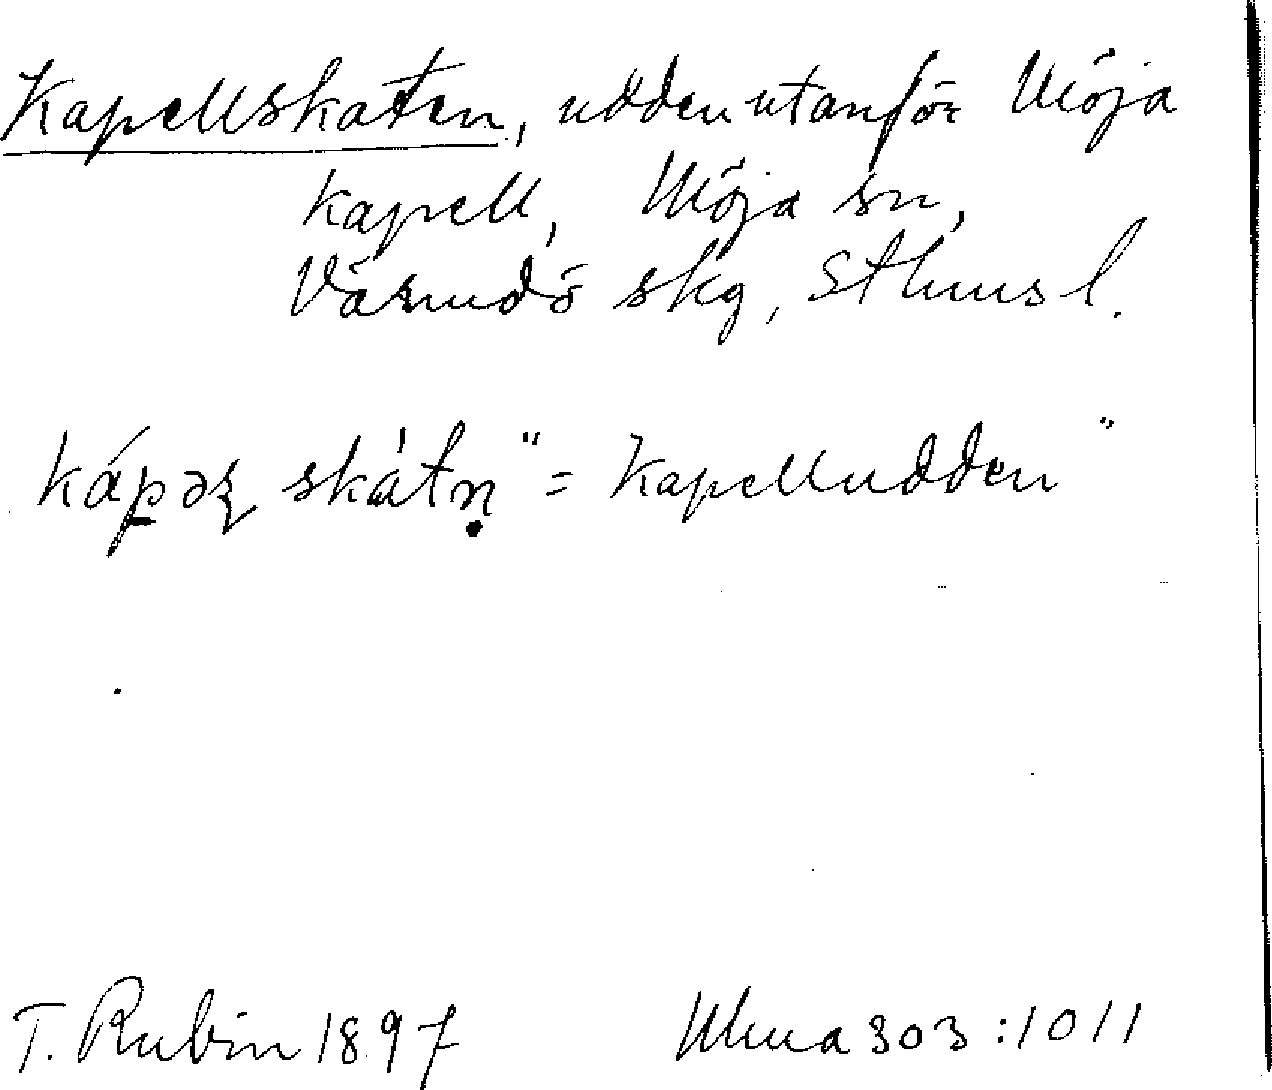 Kapellskaten, udden utanför Möja
kapell, Möja sn,
Värmdö skg, Sthms l.
skátn̥ "= Kapelludden"
T. Rubin 1897 Ulma 303:1011